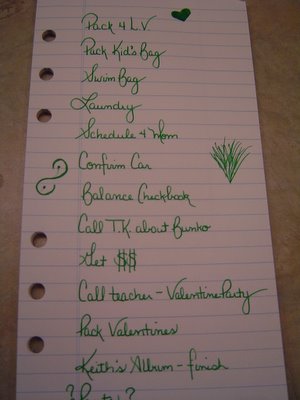 Pack 4 L.V.
Pack Kid's Bag
Swim Bag
Laundry
Schedule 4 Mom
Confirm Car
Balance Checkbook
Call T.K. about Bunko
Get $$
Call teacher - Valentine Party
Pack Valentines
Keith's Album - finish